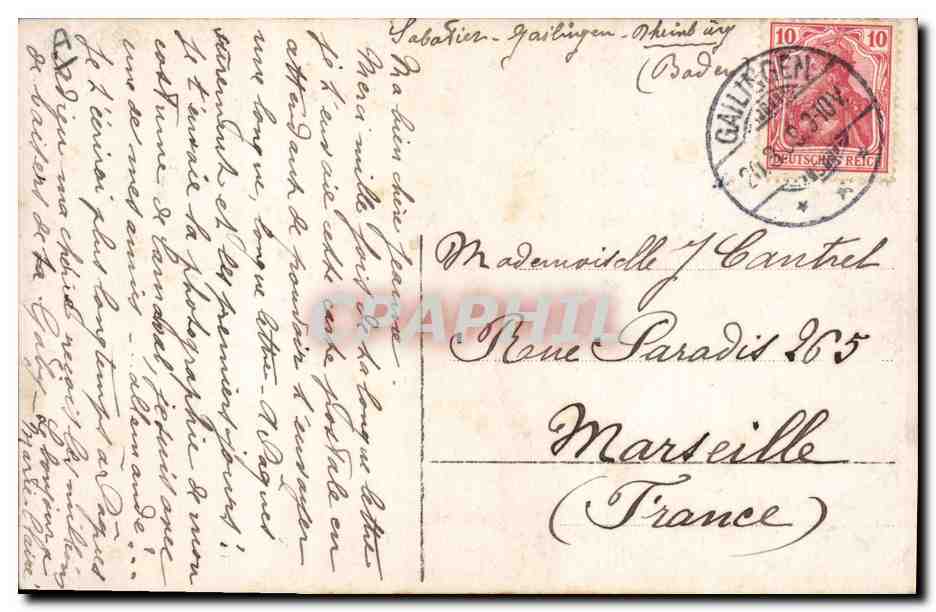 Sabatier - Gailingen - Rheinburg
(Baden
10 10
DEUTSCHES REICH
GAILINGEN
Mademoiselle J Cantrel
Rue Paradis 265
Marseille
(France)
Ma bien chère Jeanne
Merci mille fois de ta longue lettre
je t'envoie cette carte postale en
attendant de pouvoir t'envoyer
une longue, longue lettre - à Pâques
surement et les premiers jours!
Je t'envoie la photographie de mon
costume de carnaval, je suis avec
une de mes amies - allemande...
Je t'écrirai plus longtemps à Pâques
ma chérie reçois les milliers
de baisers de ta Gaby
CPARPHIL